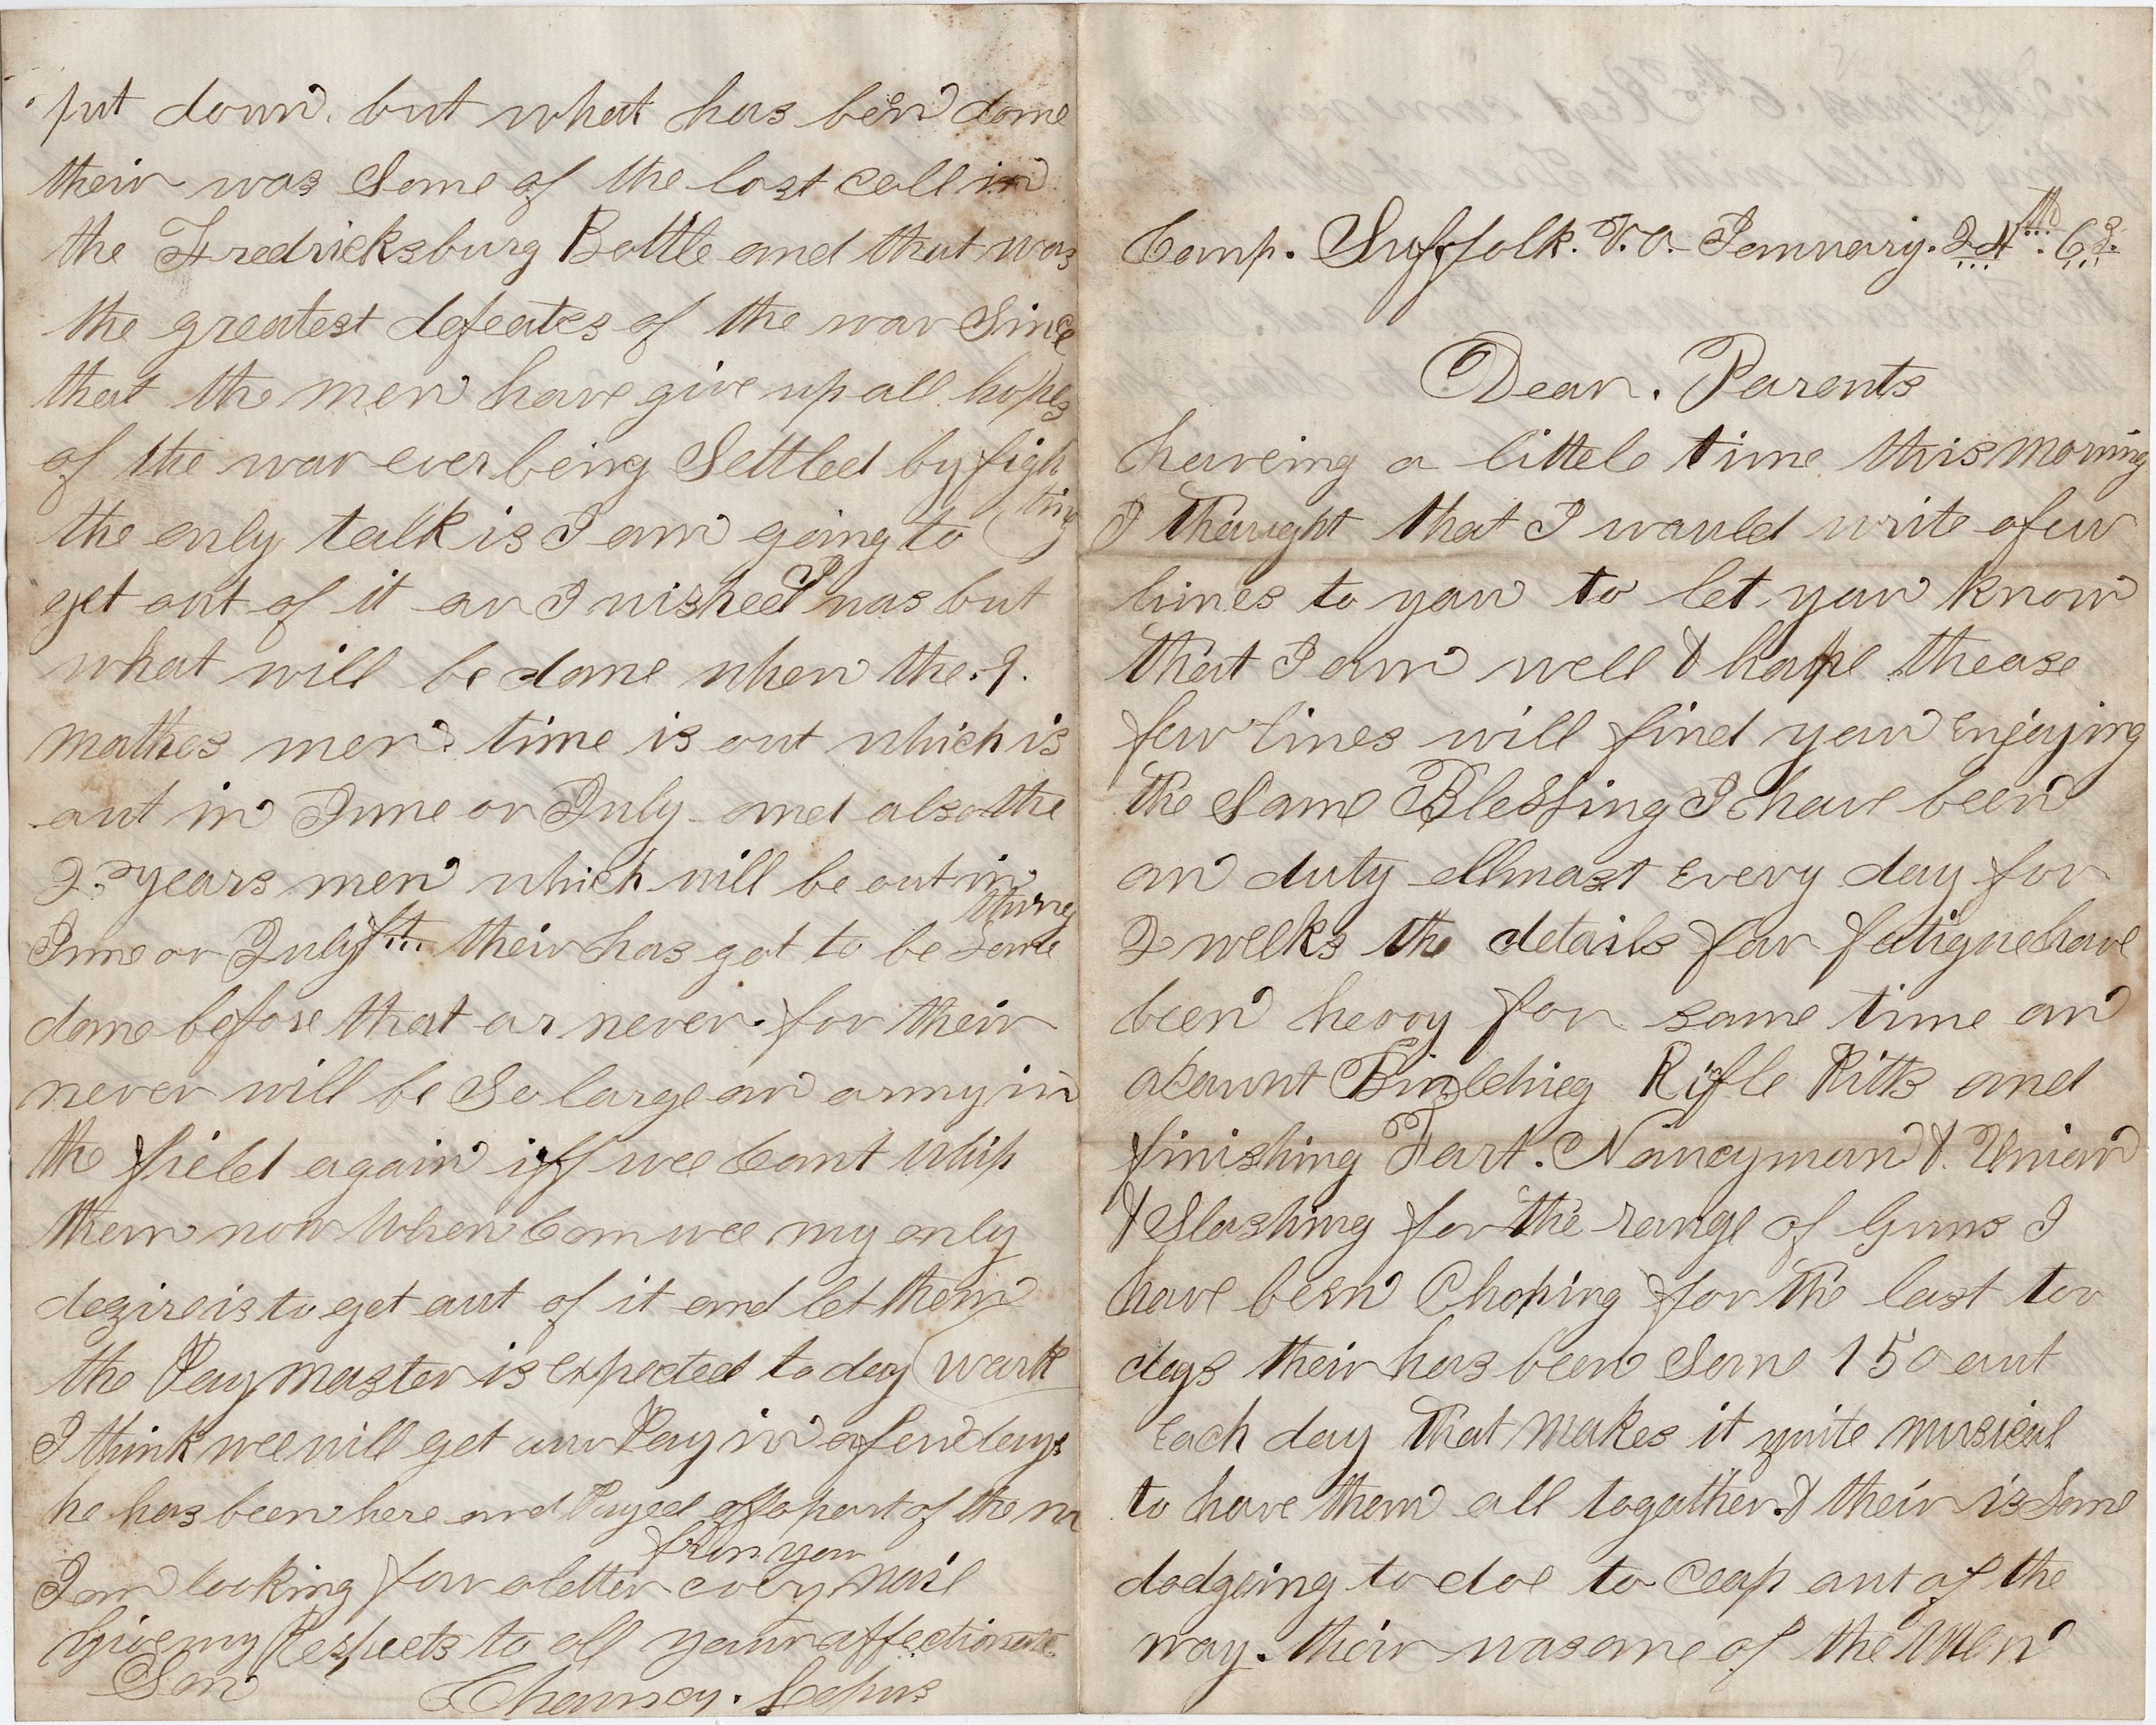 Camp. Suffolk. V.a. January. 24th. 63.
Dear. Parents
haveing a littele time this morning
I thought that I would write a few
lines to you to let you know
that I am well & hope thease
few lines will find you Enjoying
the Same Blessing I have been
on duty allmost Every day for
2 weeks the details for fatigue have
been heavy for some time on
acount Buildhieg Rifle Pitts and
finishing Fort. Nancymon &. Union
& Slashing for the range of Guns I
have been Choping for the last tow
days their has been Some 150 out
Each day that makes it quite musical
to have them all togather. & their is Some
dodgeing to doe to Ceap out of the
way. their was one of the Men
put down. but what has been done
their was Some of the last call in
the Fredricksburg Battle and that was
the greatest defeates of the war Since
that the men have give up all hopes
of the war ever being Settled by figh
ting
the only talk is I am going to
get out of it or I wished I was but
what will be done when the. 9.
mothes men. time is out which is
out in June or July and also the
2. years men which will be out in
June or July their has got to be Some
thing
done before that or never. for their
never will be So large an army in
the field again iff wee Cant Whip
them now When Can wee my only
dezire is to get out of it and let them
work
the Paymaster is expected to day
I think wee will get our Pay in a few days
he has been here and Payed off a part of the m
I am looking for a letter from you every mail
Give my Respects to all your affectionate
Son Chauncy.